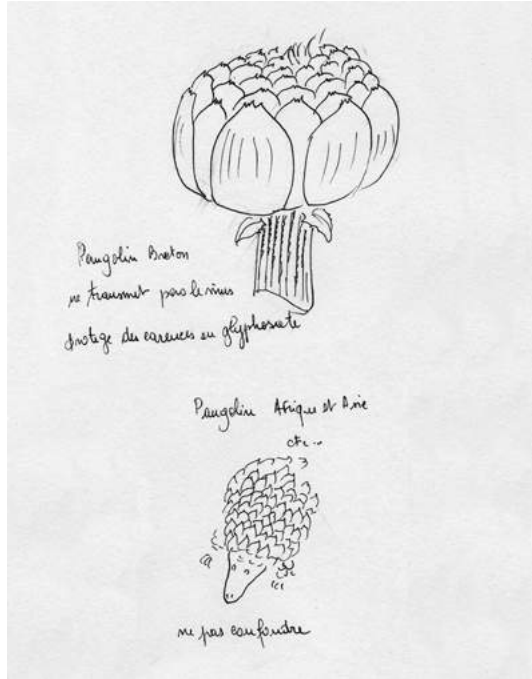 Pangolin Breton
ne transmet pas le virus
protège des carences en glyphosate
Pangolin Afrique et Asie
etc...
ne pas confondre